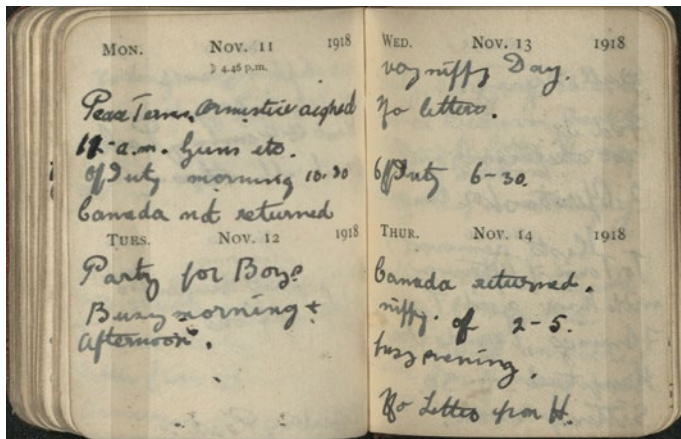 MON. NOV. 11 1918
☽ 4.46 p.m.
Peace Terms, Armistice signed
11 a.m. Guns etc.
off Duty morning 10.30
Canada not returned
TUES. NOV. 12 1918
Party for Boys
Busy morning +
afternoon.
WED. NOV. 13 1918
very niffy Day.
No letters.
Off Duty 6-30.
THUR. NOV. 14 1918
Canada returned.
niffy. off 2-5.
evening.
No Letter from H.